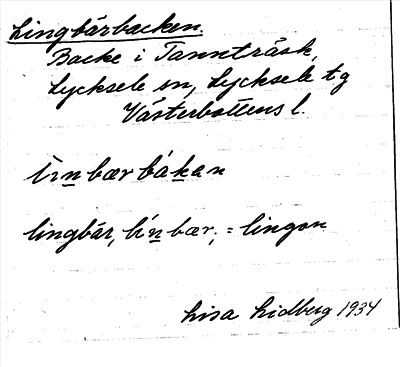 Lingbärbacken.
Backe i Tannträsk,
Lycksele sn, Lycksele tg
Västerbottens l.
lìn̲bær bák̲an
lingbär, lín̲bær, = lingon
Lisa Lidberg 1934